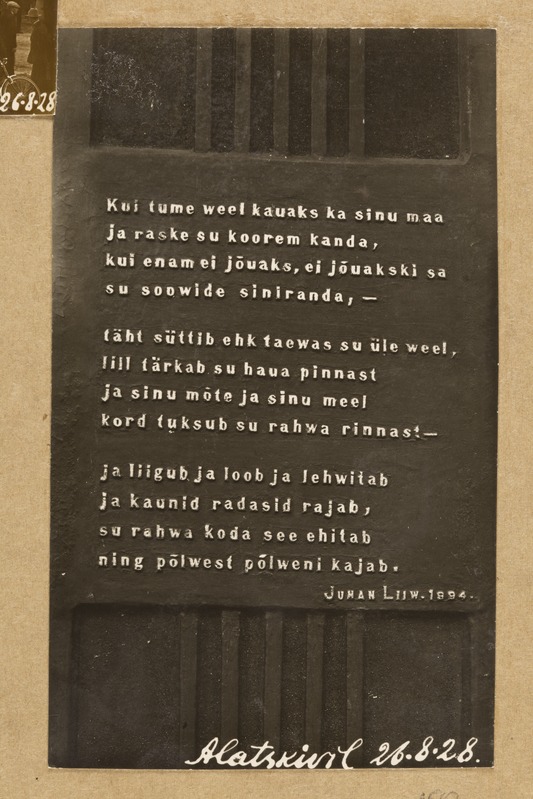 26·8·28
Kui tume weel kauaks ka sinu maa
ja raske su koorem kanda,
kui enam ei jõuaks, ei jõuakski sa
su soowide siniranda, —
täht süttib ehk taewas su üle weel,
lill tärkab su haua pinnast
ja sinu mõte ja sinu meel
kord tuksub su rahwa rinnast—
ja liigub ja loob ja lehwitab
ja kaunid radasid rajab,
su rahwa koda see ehitab
ning põlwest põlweni kajab.
JUHAN LIIW. 1894.
Alatskivil 26·8·28.